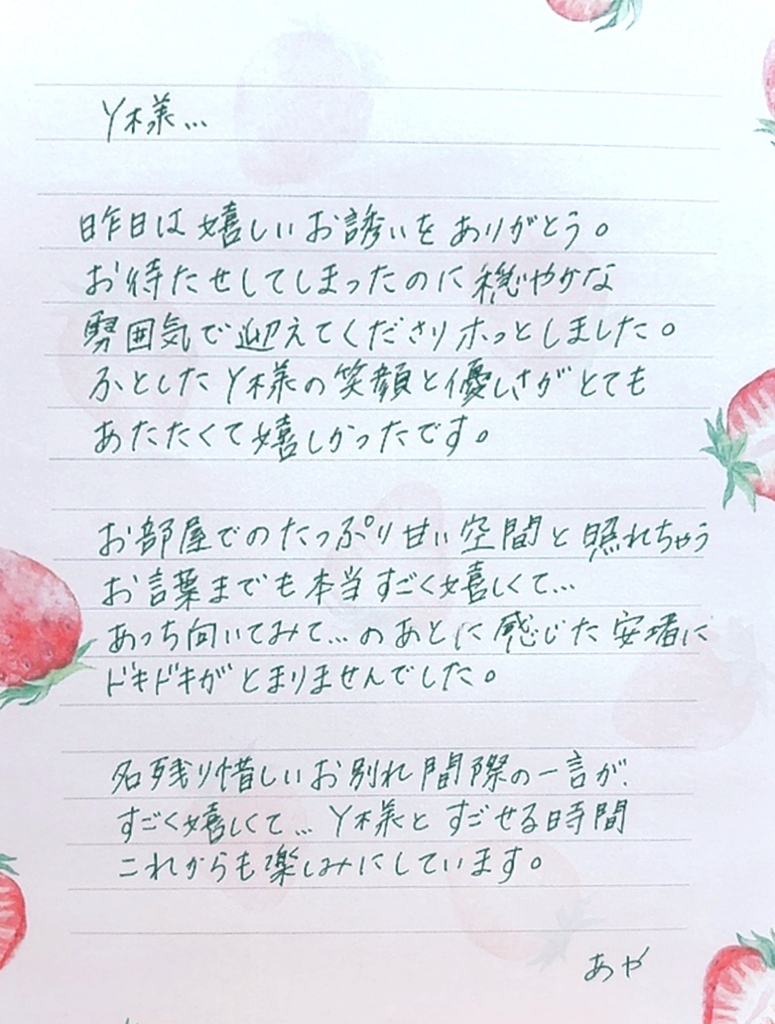 Y様…
昨日は嬉しいお誘いをありがとう。
お待たせしてしまったのに穏やかな
雰囲気で迎えてくださりホっとしました。
ふとしたY様の笑顔と優しさがとても
あたたくて嬉しかったです。
お部屋でのたっぷり甘い空間と照れちゃう
お言葉までも本当すごく嬉しくて…
あっち向いてみて…のあとに感じた安堵に
ドキドキがとまりませんでした。
名残り惜しいお別れ間際の一言が、
すごく嬉しくて…Y様とすごせる時間
これからも楽しみにしています。
あや